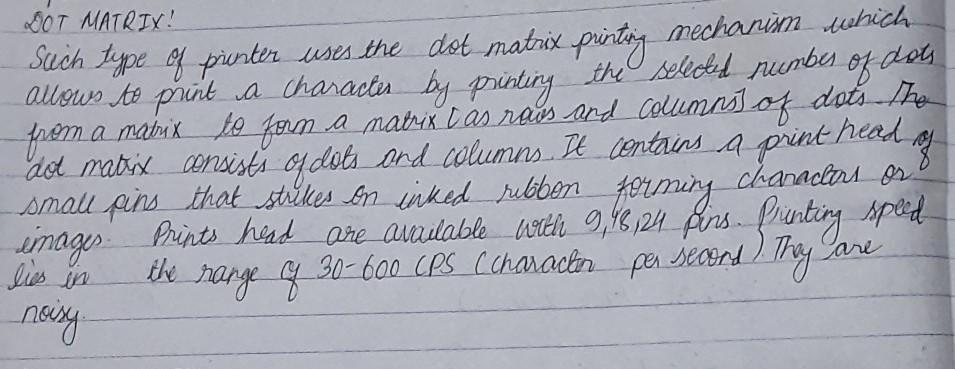 DOT MATRIX!
Such type of printer uses the dot matrix printing mechanism which
allows to print a character by printing the selected number of dots
from a matrix to form a matrix [as rows and columns] of dots. The
dot matrix consists of dots and columns. It contains a print head of
small pins that strikes on inked rubbon forming characters or
images. Prints head are available with 9, 18, 24 pins. Printing speed
lies in the range of 30-600 CPS (character per second). They are
noisy.